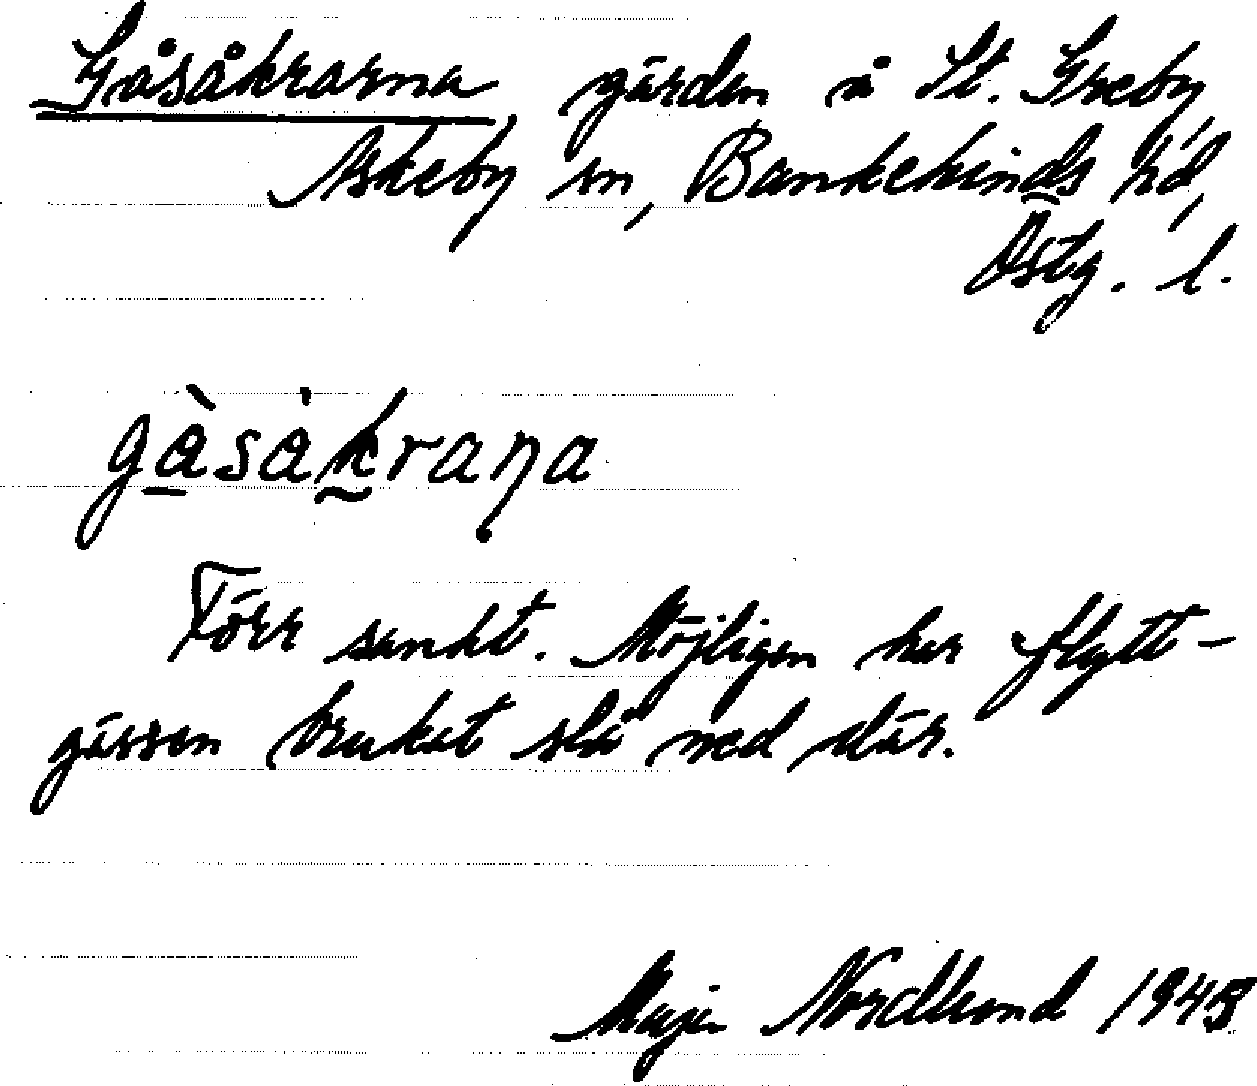 Gåsåkrarna, gärden å St. Greby,
Askeby sn, Bankekinds hd,
Östg. l.
gàsåkraṇa
Förr sankt. Möjligen har flytt-
gässen brukat slå ned där.
Nordlund 1943